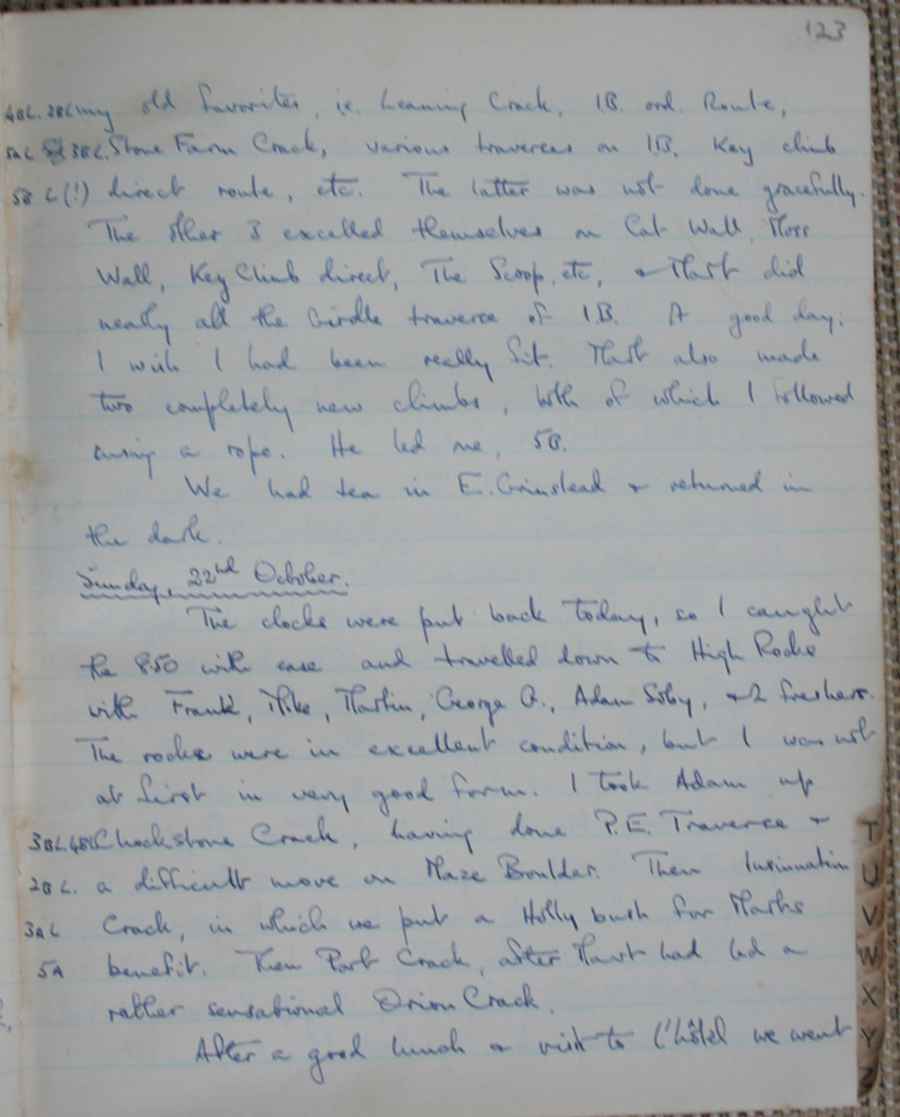 123
4BL. 2BL my old favorites, i.e. Leaning Crack, 1B. ord. Route,
5AL 3BL. Stone Farm Crack, various traverses on 1B. Key climb
5B L(!) direct route, etc. The latter was not done gracefully.
The other 3 excelled themselves on Cat Wall, Moss
Wall, Key Climb direct, The Scoop, etc, & Mart did
nearly all the Girdle traverse of 1B. A good day;
I wish I had been really fit. Mart also made
two completely new climbs, both of which I followed
using a rope. He led me, 5B.
We had tea in E. Grinstead & returned in
the dark.
Sunday, 22nd October.
The clocks were put back today, so I caught
the 8.50 with ease and travelled down to High Rocks
with Frank, Mike, Martin, George G., Adam, & 2 freshers.
The rocks were in excellent condition, but I was not
at first in very good form. I took Adam up
3BL 4BL Chockstone Crack, having done P.E. Traverse &
2BL. a difficult move on Maze Boulder. Then Insinuation
3AL Crack, in which we put a Holly bush for Marts
5A benefit. Then Port Crack, after Mart had led a
rather sensational Orion Crack.
After a good lunch & visit to l'hôtel we went
T
U
V
W
X
Y